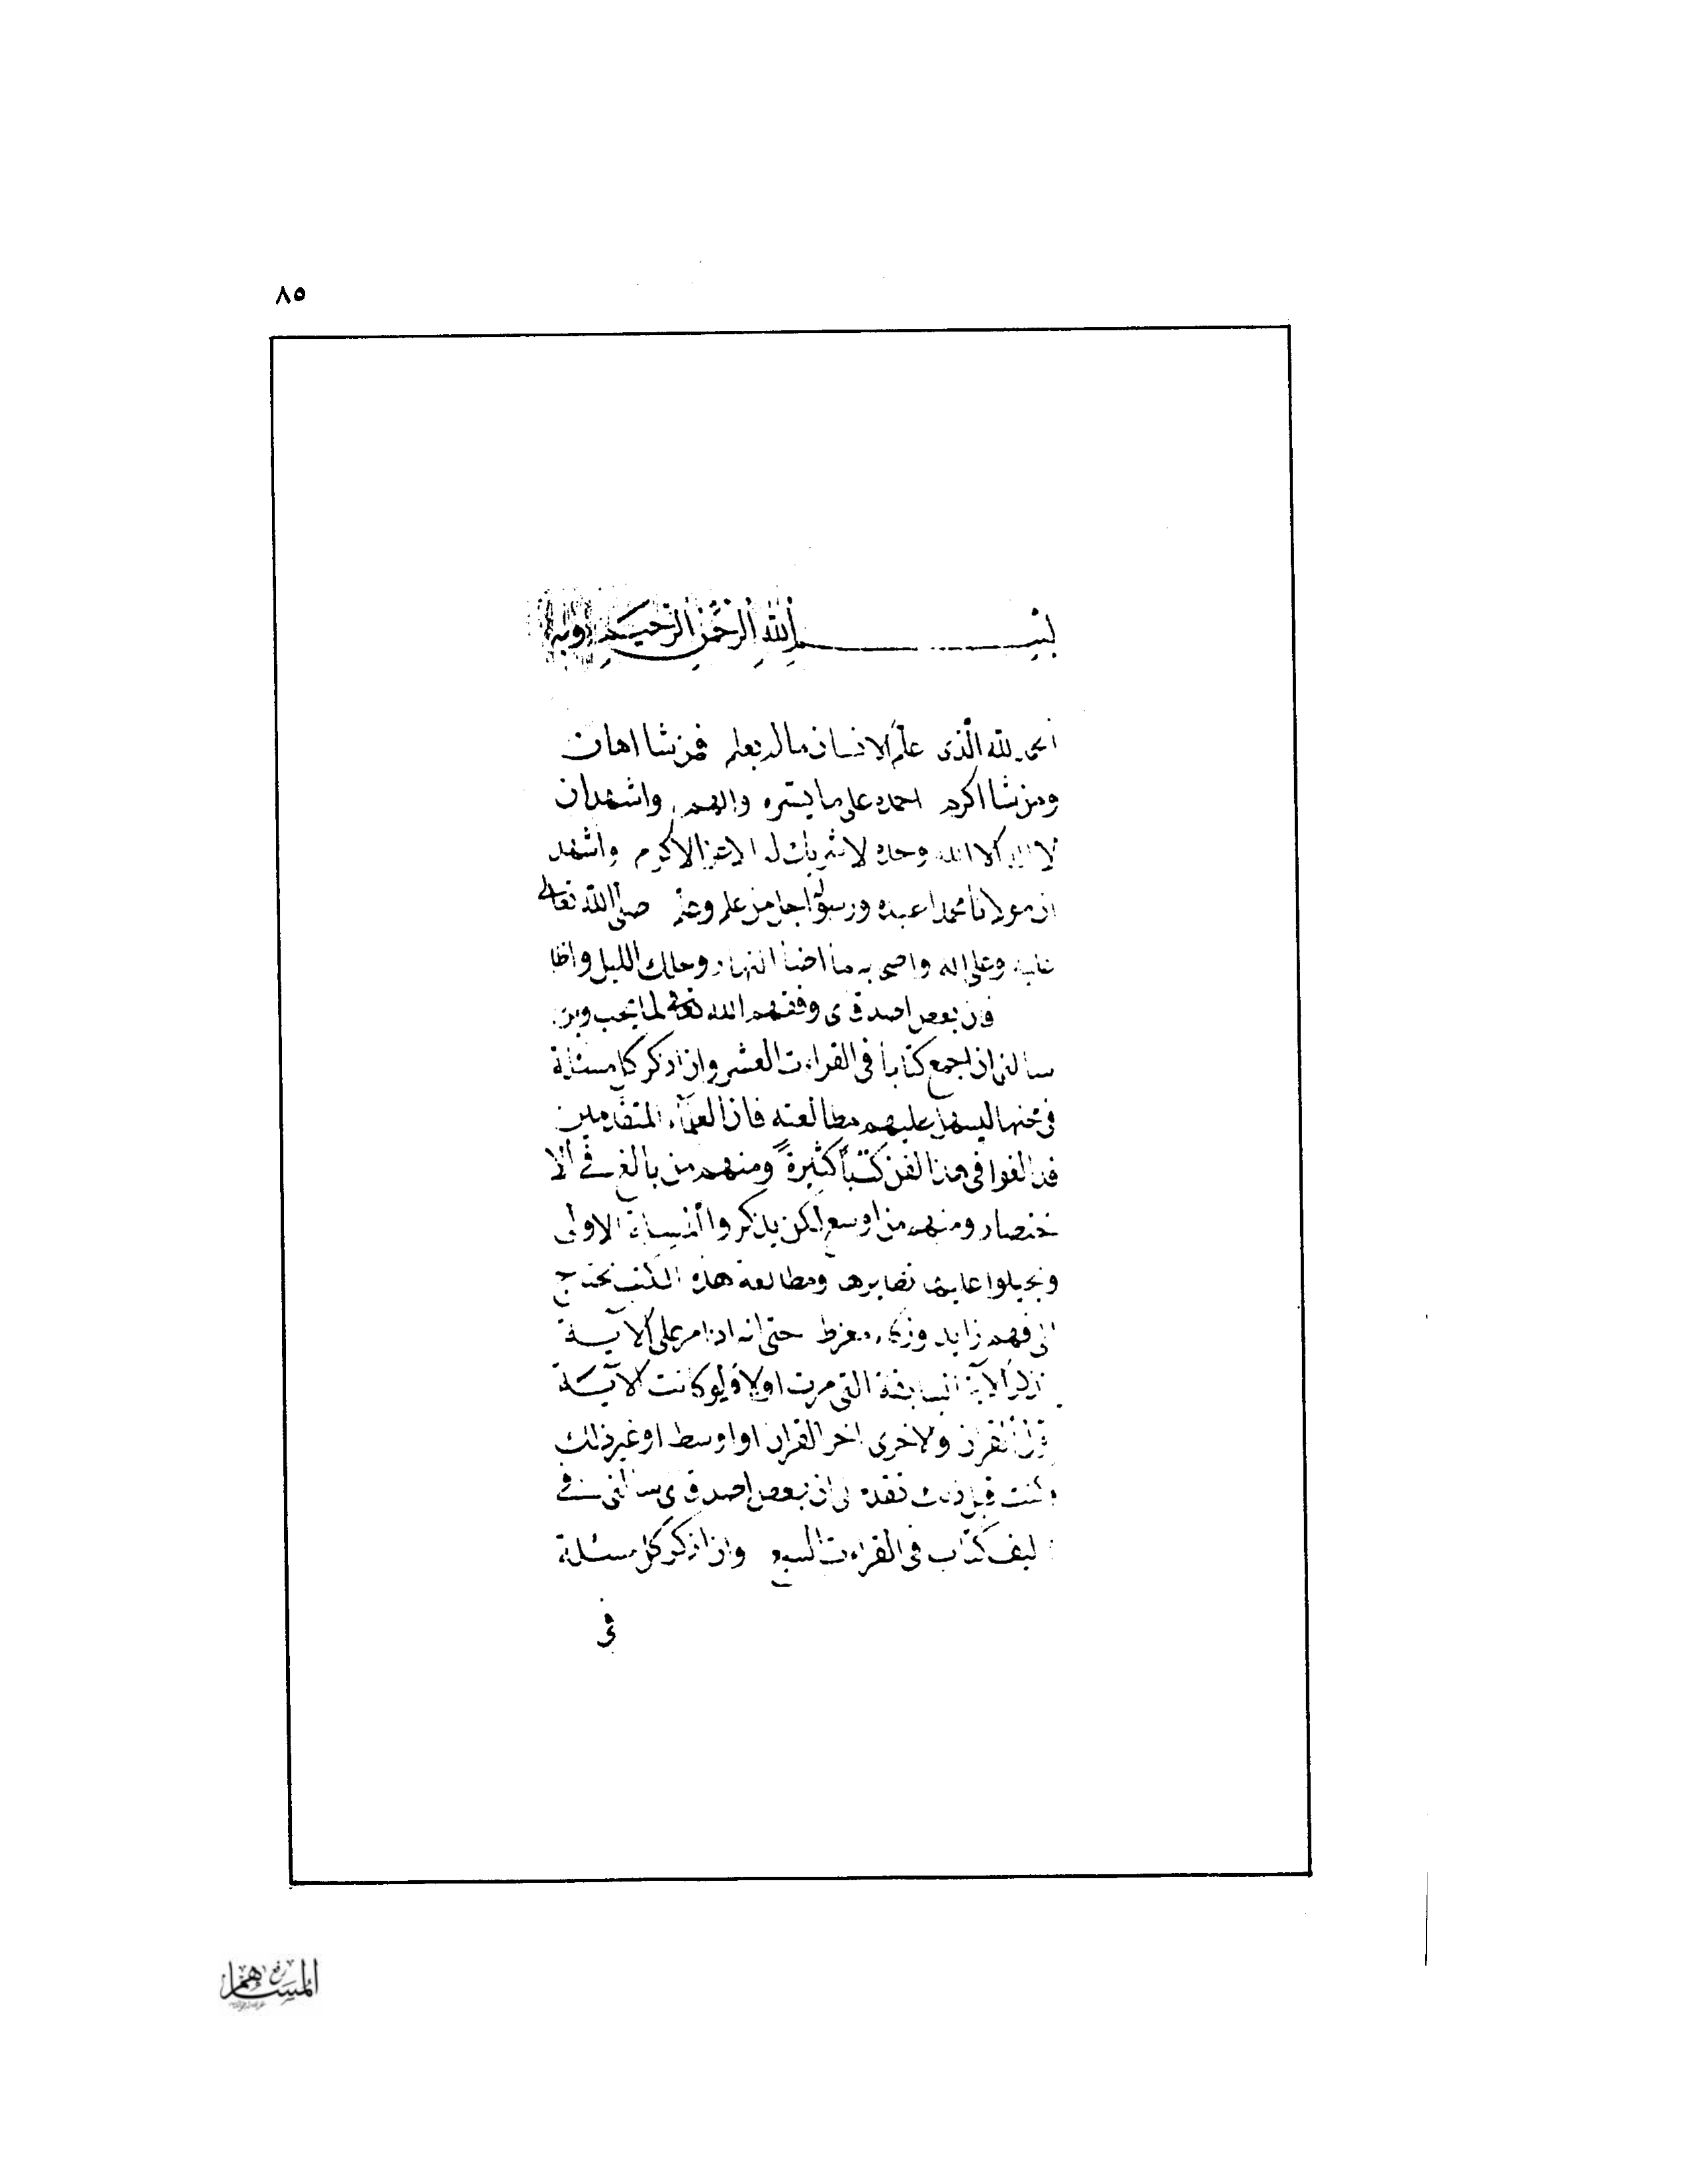 ٨٥
بسم الله الرحمن الرحيم وبه
الحمد لله الذى علم الانسان مالم يعلم فمن شا اهان
ومن شا اكرم احمده على ما يسره والهم واشهدان
لا اله الا الله وحده لا شريك له الاعز الاكرم واشهد
ان مولانا محمدا عبده ورسوله اجل من علم وعلم صلى الله تعالى
عليه وعلى اله واصحابه ما اضا النهار وحلك الليل واظلم
فان بعض اصدقاى وفقهم الله تعالى لما يحب
سالنى ان اجمع كتابا فى القراءت العشر وان اذكر كل مسئلة
فى محلها ليسهل عليهم مطالعته فان العلمآء المتقدمين
قد الفوا فى هذا الفن كتبا كثيرة ومنهم من بالغ فى الا
ختصار ومنهم من اوسع لكن يذكروا المسئلة الاولى
ويحيلوا عليها نضايرها ومطالعة هذه الكتب تحتاج
الى فهم زايد وذكاء مفرط حتى انه اذا مر على الآية
تذكر الآية السابقة التى مرت اولا ولو كانت الآية
اول القران والاخرى اخر القران او اوسط او غير ذلك
وكنت قبل ذلك تقدم لى ان بعض اصدقاى سالنى فى
تاليف كتاب فى القراءت السبع وان اذكر كل مسئلة
فى
المساهم